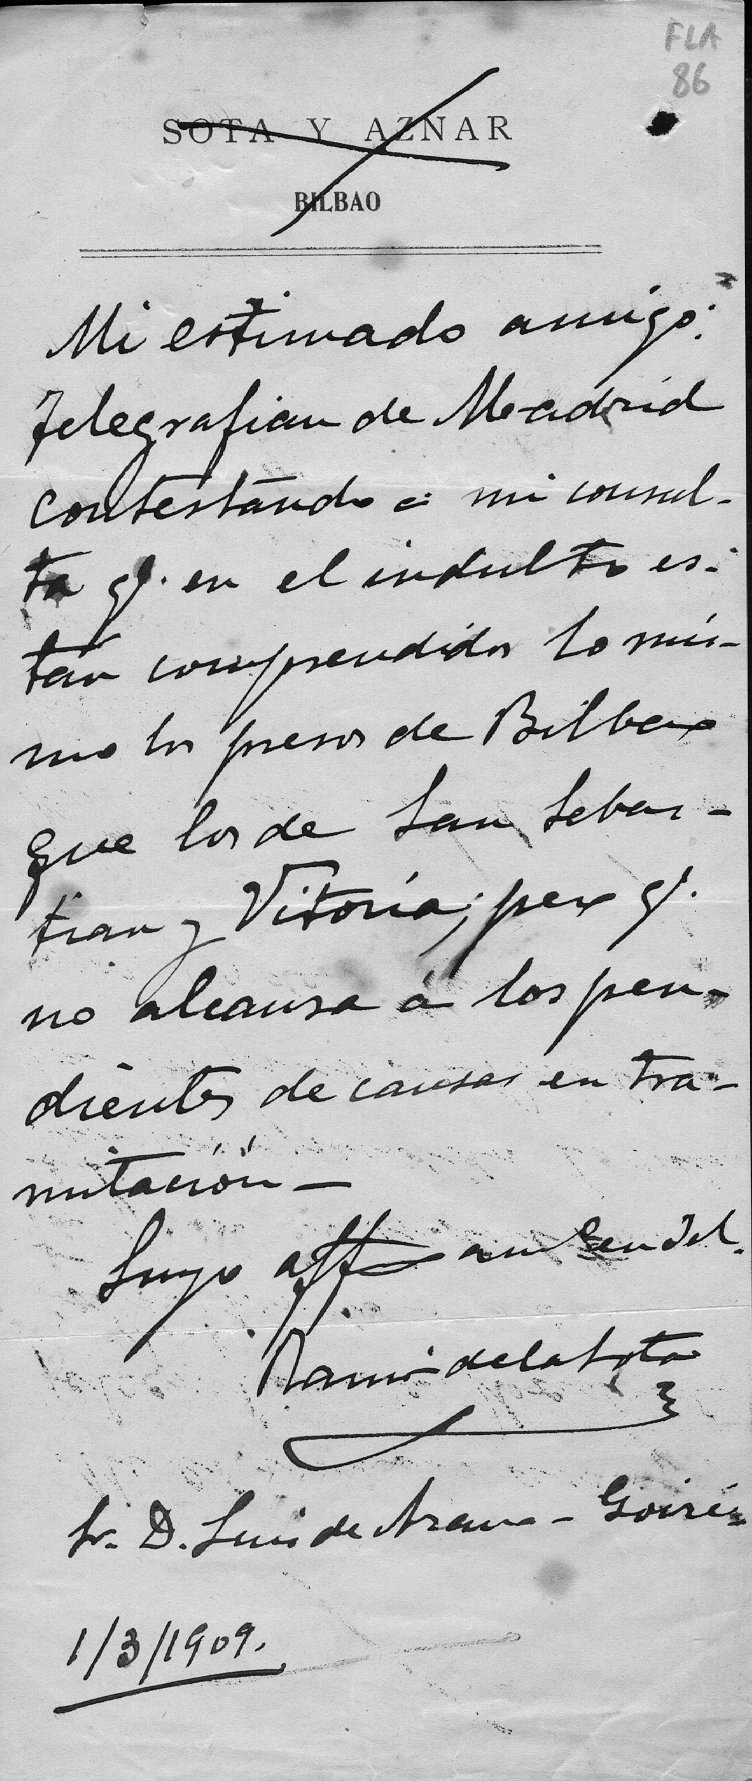 FLA
86
SOTA Y AZNAR
BILBAO
Mi estimado amigo:
Telegrafian de Madrid
contestando a mi consul-
ta q. en el indulto es-
tán comprendidos lo mis-
mo los presos de Bilbao
que los de San Sebas-
tian y Vitoria; pero q.
no alcanza á los pen-
dientes de causas en tra-
mitación —
Suyo aff
Ramón de la Sota
Sr. D. Luis de Arana-Goiri
1/3/1909.